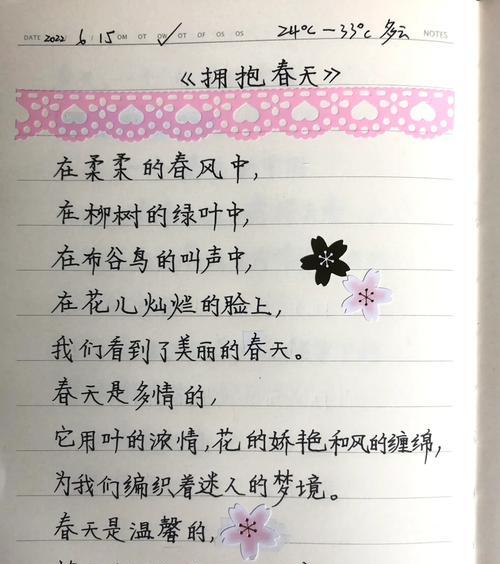 DATE 2022 6/15 OM OT OW OT OF OS OS 24℃—33℃ 多云 NOTES
《拥抱春天》
在柔柔的春风中,
在柳树的绿叶中,
在布谷鸟的叫声中,
在花儿灿烂的脸上,
我们看到了美丽的春天。
春天是多情的,
它用叶的浓情,花的娇艳和风的缠绵,
为我们编织着迷人的梦境。
春天是温馨的,